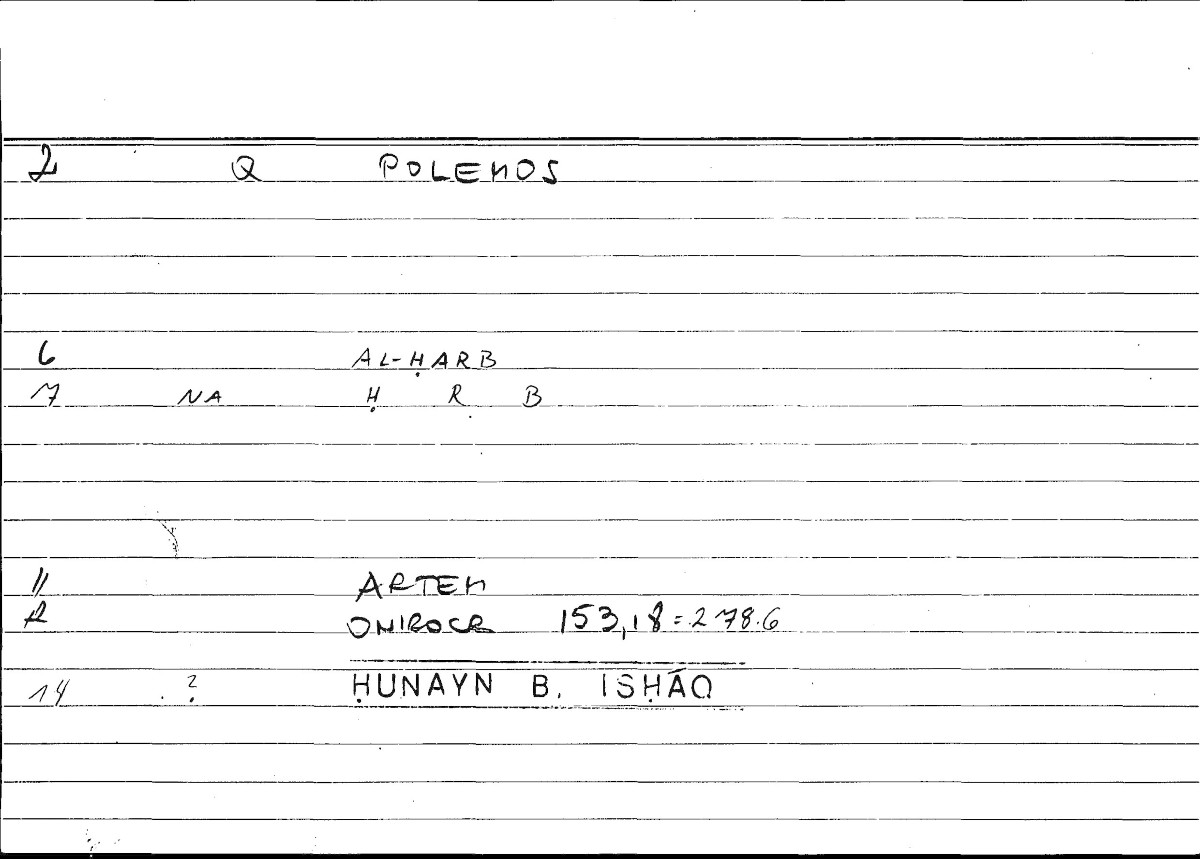 2 Q POLEMOS
6 AL-ḤARB
7 NA Ḥ R B
11 ARTEM
12 ONIROCR 153,18=278.6
14 ? ḤUNAYN B. ISḤĀQ